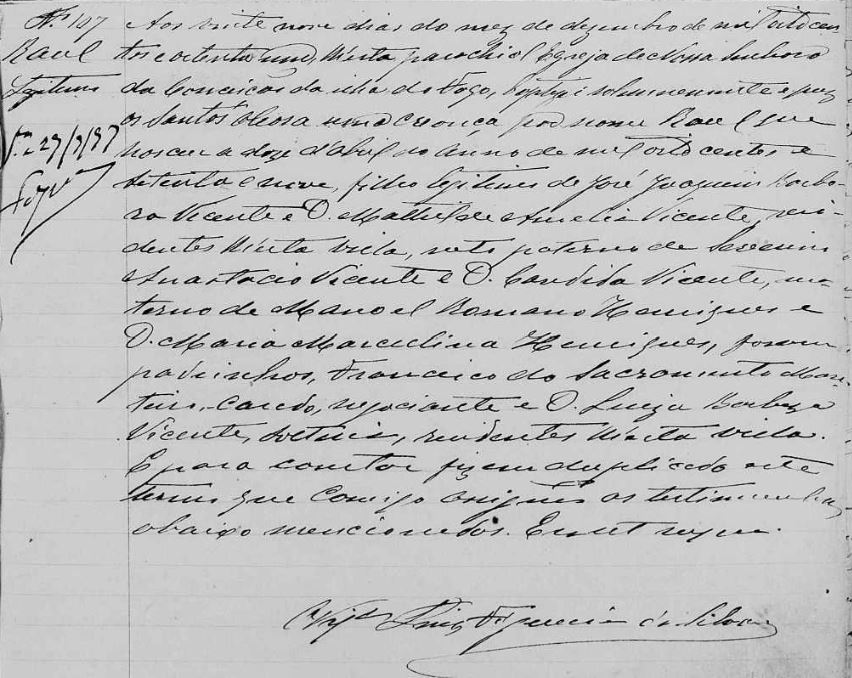 Nº 107
Raul
Legitimo
27/7/37
Aos vinte nove dias do mez de dezembro de mil oitocen
tos e oitenta um, n'esta parochial Egreja de Nossa Senhora
da Conceição da ilha do Fogo, baptizei solemnemente e puz
os Santos Oleos a uma creança por nome Raul que
nasceu a doze d'Abril do Anno de mil oitocentos e
setenta e nove, filho legitimo de José Joaquim Barbo
za Vicente e D. Mathilde Amelia Vicente, resi-
dentes n'esta villa, neto paterno de Severino
Anastacio Vicente e D. Candida Vicente, ma-
terno de Manoel Romano Henriques e
D. Maria Marcelina Henriques, foram
padrinhos, Francisco do Sacramento Mon
teiro, casado, negociante e D. Luiza Barboza
Vicente, solteira, residentes n'esta villa.
E para constar fiz em duplicado este
termo que comigo assignam as testimunhas
abaixo mencionados. Era ut supra.
Luiz da Silva